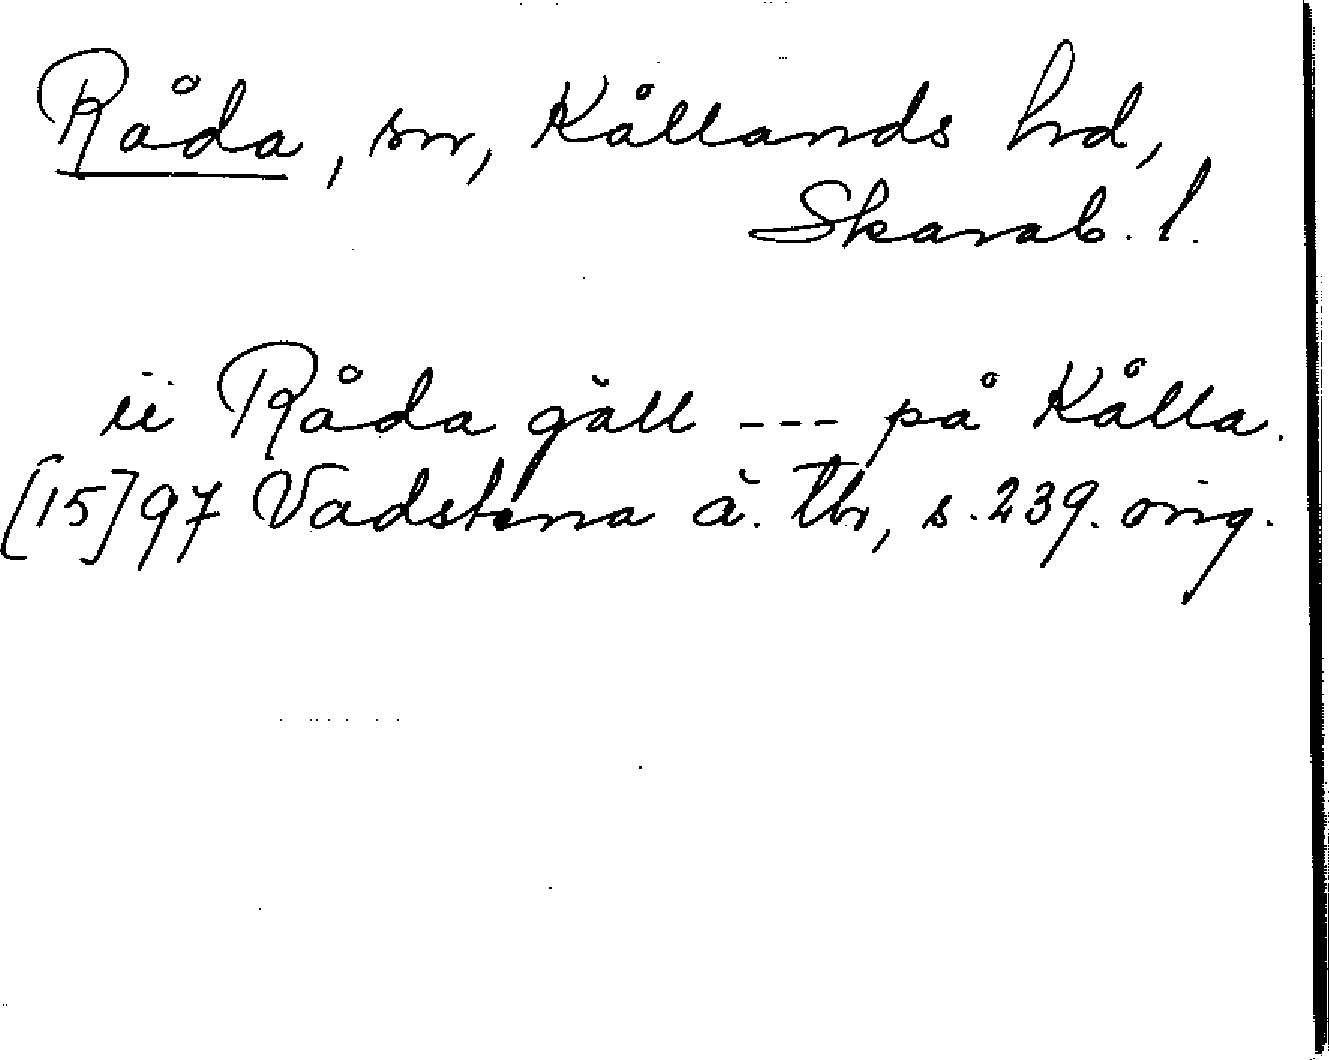 Råda, sn, Kållands hd,
Skarab. l.
ii Råda gäll --- på Kålla.
[15]97 Vadstena ä. tb, s. 239. orig.